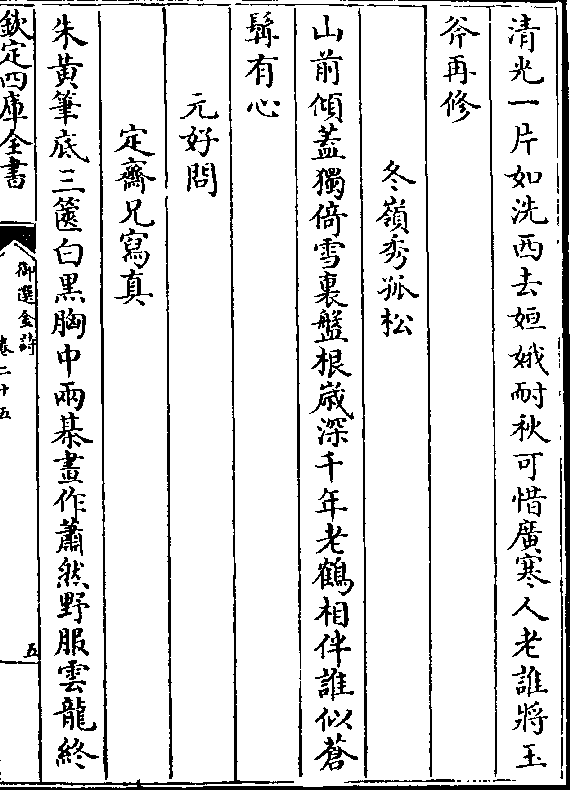 清光一片如洗西去姮娥耐秋可惜廣寒人老誰將玉
斧再修
冬嶺秀孤松
山前傾蓋獨倚雪裏盤根嵗深千年老鶴相伴誰似蒼
髯有心
元好問
定齋兄寫真
朱黃筆底三篋白黒胸中兩棊畫作蕭然野服雲龍終
欽定四庫全書
御選金詩
卷二十五
五